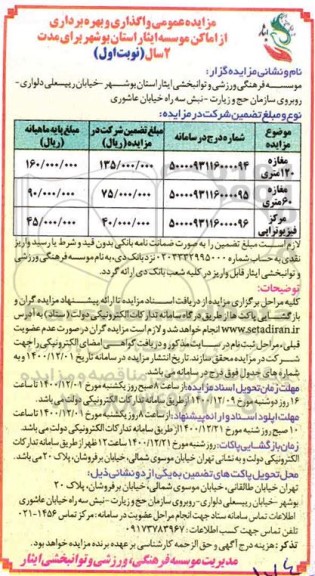 مزایده عمومی واگذاری و بهره برداری
از اماکن موسسه ایثار استان بوشهر برای مدت
۲ سال (نوبت اول)
نام و نشانی مزایده گزار:
موسسه فرهنگی ورزشی و توانبخشی ایثار استان بوشهر - خیابان رییسعلی دلواری -
روبروی سازمان حج و زیارت - نبش سه راه خیابان عاشوری
نوع و مبلغ تضمین شرکت در مزایده:
موضوع مزایده شماره درج در سامانه مبلغ تضمین شرکت در مزایده (ریال) مبلغ پایه ماهیانه (ریال)
مغازه ۱۲۰ متری ۵۰۰۰۰۹۳۱۱۶۰۰۰۰۹۴ ۱۳۵/۰۰۰/۰۰۰ ۱۶۰/۰۰۰/۰۰۰
مغازه ۶۰ متری ۵۰۰۰۰۹۳۱۱۶۰۰۰۰۹۵ ۷۵/۰۰۰/۰۰۰ ۹۰/۰۰۰/۰۰۰
مرکز فیزیوتراپی ۵۰۰۰۰۹۳۱۱۶۰۰۰۰۹۶ ۴۰/۰۰۰/۰۰۰ ۴۵/۰۰۰/۰۰۰
لازم است مبلغ تضمین را به صورت ضمانت نامه بانکی بدون قید و شرط یا رسید واریز
نقدی به حساب شماره نزد بانک دی، به نام موسسه فرهنگی ورزشی
و توانبخشی ایثار قابل واریز در کلیه شعب بانک دی ارائه گردد.
توضیحات:
کلیه مراحل برگزاری مزایده از دریافت اسناد مزایده تا ارائه پیشنهاد مزایده گران و
بازگشایی پاکت ها از طریق درگاه سامانه تدارکات الکترونیکی دولت (ستاد) به آدرس
www.setadiran.ir انجام خواهد شد و لازم است مزایده گران در صورت عدم عضویت
قبلی، مراحل ثبت نام در سایت مذکور و دریافت گواهی امضای الکترونیکی را جهت
شرکت در مزایده محقق سازند. تاریخ انتشار مزایده در سامانه تاریخ ۱۴۰۰/۱۲/۰۱ و به
شماره های جدول فوق درج در سامانه می باشد.
مهلت زمان تحویل اسناد مزایده: از ساعت ۸ صبح روز یکشنبه مورخ ۱۴۰۰/۱۲/۰۱ تا ساعت
۱۶ روز دوشنبه مورخ ۱۴۰۰/۱۲/۰۹ از طریق سامانه تدارکات الکترونیکی دولت می باشد.
مهلت آپلود اسناد و ارائه پیشنهاد: از ساعت ۸ روز یکشنبه مورخ ۱۴۰۰/۱۲/۰۱ تا ساعت
۱۰ صبح روز شنبه مورخ ۱۴۰۰/۱۲/۲۱ از طریق سامانه تدارکات الکترونیکی دولت می باشد.
زمان بازگشایی پاکات: روز شنبه مورخ ۱۴۰۰/۱۲/۲۱ ساعت ۱۲ ظهر از طریق سامانه تدارکات
الکترونیکی دولت و به نشانی تهران خیابان موسوی شمالی، خیابان برفروشان، پلاک ۲۰ می باشد.
محل تحویل پاکت های تضمین به یکی از دو نشانی ذیل:
تهران خیابان طالقانی، خیابان موسوی شمالی، خیابان برفروشان، پلاک ۲۰
بوشهر - خیابان رییسعلی دلواری - روبروی سازمان حج و زیارت - نبش سه راه خیابان عاشوری
اطلاعات تماس سامانه ستاد جهت انجام مراحل عضویت در سامانه: مرکز تماس ۱۴۵۶-۰۲۱
تلفن تماس جهت کسب اطلاعات: ۰۹۱۷۳۷۸۳۹۶۷
تذکر: هزینه درج آگهی و حق الزحمه کارشناسی بر عهده برنده مزایده خواهد بود.
مدیریت موسسه فرهنگی، ورزشی و توانبخشی ایثار